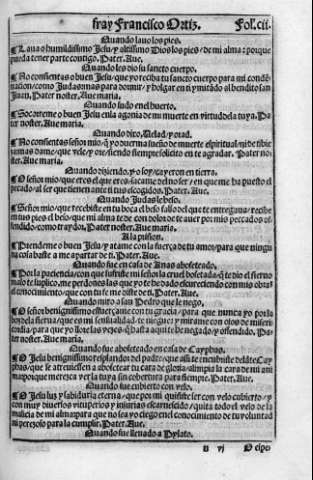 fray Francisco Ortiz. Fol. cii.
Quando lavo los pies.
¶ Lava o humildissimo Jesu / y altissimo Dios los pies / de mi alma: porque
pueda tener parte contigo. Pater. Ave.
Quando les dio su sancto cuerpo.
¶ No consientas o buen Jesu / que yo reciba tu sancto cuerpo para mi condē
nacion / como Judas: mas para dormir / y holgar en ti imitādo al bendito san
Juan. Pater noster. Ave maria.
Quando sudo en el huerto.
¶ Socorreme o buen Jesu en la agonia de mi muerte en virtud dela tuya. Pa
ter noster. Ave maria.
Quando dixo. Velad / y orad.
¶ No consientas señor mio / q̄ yo duerma sueño de muerte espiritual /
mas dame / que vele / y ore / siendo siempre solicito en te agradar. Pater no
ster. Ave maria.
Quando diziendo. yo soy / cayeron en tierra.
¶ O señor mio / que eres el que eres:
pecado / al ser que tienen ante ti tus escogidos. Pater. Ave.
Quando Judas le beso.
¶ Señor mio / que recebiste en tu boca el beso falso del que te entregava / recibe
en tus pies el beso / que mi alma te de con dolor de te aver por mis peccados of
fendido / como traydor. Pater. Ave.
A la prision.
¶ Prendeme o buen Jesu / y atame con la fuerça de tu amor / para que ningu
na cosa baste a me apartar de ti. Pater. Ave.
Quando fue en casa de Anas abofeteado.
¶ Por la paciencia / con que sufriste mi señor la cruel bofetada / q̄ te dio el siervo
malo te suplico / me perdones las que yo te he dado escureciendo con mis obras
el conocimiento / que con tu fe me diste de ti. Pater. Ave.
Quando miro a san Pedro que le nego.
¶ O señor benignissimo esfuerçame con tu gracia / para que nunca yo por la
bondad sierva / que es mi sensualidad te niegue: y mirame con ojos de miseri
cordia / para que yo llore las vezes / q̄ hasta aqui te he negado / y offendido. Pa
ter noster. Ave maria.
Quando fue abofeteado en casa de Cayphas.
¶ O Jesu benignissimo resplandor del padre /
phas / que se atreviessen a abofetear tu cara de gloria: alimpia la cara de mi ani
ma porque merezca ver la tuya sin cobertura para siempre. Pater. Ave.
Quando fue cubierto con velo.
¶ O Jesu luz / y sabiduria eterna / que por mi quisiste ser con velo cubierto / y
con muy diversos vituperios / y injurias escarnecido / quita todo el velo de la
malicia de mi alma: para que no sea yo ciego en el conocimiento de tu voluntad
ni perezoso para la cumplir. Pater. Ave.
Quando fue llevado a Pylato.
vj